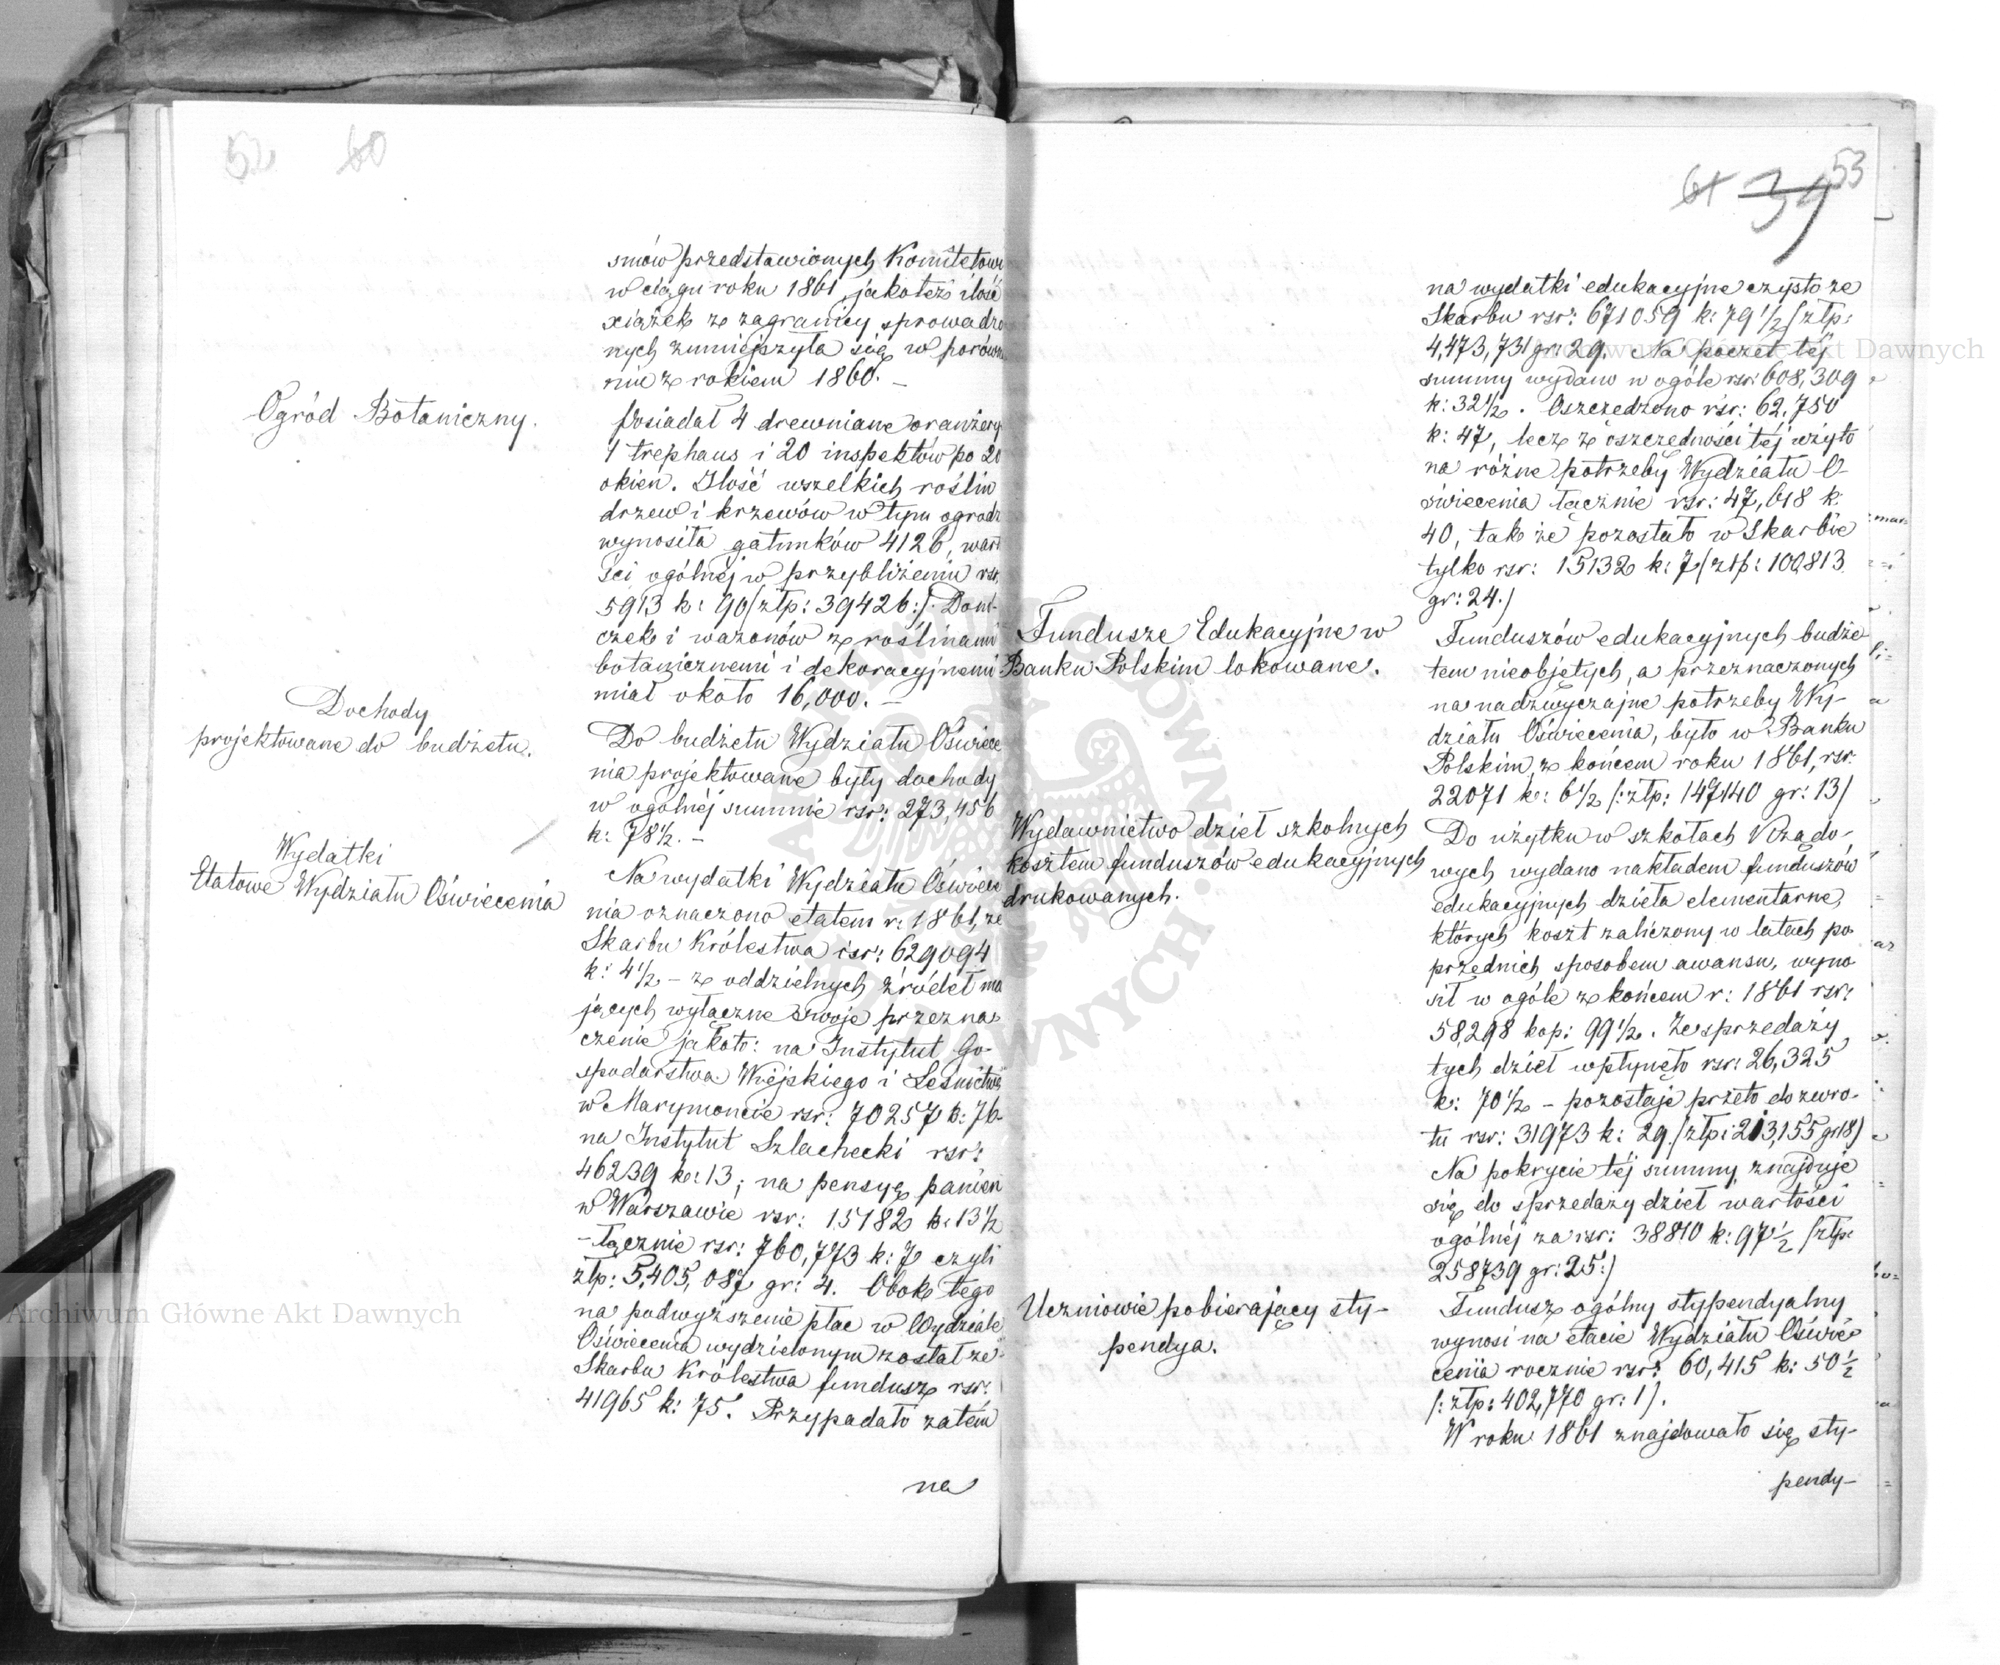 52 60
smów przedstawionych Komitetowi
w ciągu roku 1861, jakoteż ilość
xiążek z zagranicy sprowadzo
nych zmniejszyła się w porówna
niu z rokiem 1860. —
Ogród Botaniczny.
Posiadał 4 drewniane oranżery
1 trephaus i 20 inspektów po 20
okien. Ilość wszelkich roślin
drzew i krzewów w tym ogrodz
wynosiła gatunków 4126, wart
ści ogólnej w przybliżeniu rsr.
5913 k: 90 /złp: 39426:/. Doni-
czek i wazonów z roślinami
botanicznemi i dekoracyjnemi
miał około 16,000. —
Dochody
projektowane do budżetu.
Do budżetu Wydziału Oświece
nia projektowane były dochody
w ogólnéj summie rsr: 273,456
k: 78½. —
Wydatki
Etatowe Wydziału Oświecenia
Na wydatki Wydziału Oświece
nia oznaczono etatem r: 1861, ze
Skarbu Królestwa rsr: 629094
k: 4½ — z oddzielnych źródeł ma
jących wyłączne swoje przezna
czenie jakoto: na Instytut Go-
spodarstwa Wiejskiego i Leśnictwa
w Marymoncie rsr: 70257 k: 76-
na Instytut Szlachecki rsr:
46239 k: 13; na pensyę panien
w Warszawie rsr: 15182 k: 13½
— łącznie rsr: 760,773 k: 7 czyli
złp: 5,405,087 gr: 4. Obok tego
na podwyższenie płac w Wydziale
Oświecenia wydzielonym został ze
Skarbu Królestwa fundusz rsr:
41965 k: 75. Przypadało zatém
na
61 39 53
na wydatki edukacyjne czysto ze
Skarbu rsr: 671059 k: 79½ /złp:
4,473,731 gr: 29. Na poczet téj
summy wydano w ogóle rsr: 608,309
k: 32½. Oszczędzono rsr: 62,750
k: 47, lecz z oszczędności téj użyto
na różne potrzeby Wydziału O-
świecenia łącznie rsr: 47,618 k:
40, tak że pozostało w Skarbie
tylko rsr: 15132 k: 7 /złp: 100,813
gr: 24./
Fundusze Edukacyjne w
Banku Polskim lokowane.
Funduszów edukacyjnych budże
tem nieobjętych, a przeznaczonych
na nadzwyczajne potrzeby Wy-
działu Oświecenia, było w Banku
Polskim z końcem roku 1861, rsr:
22071 k: 6½ /:złp: 147140 gr: 13/
Wydawnictwo dzieł szkolnych
kosztem funduszów edukacyjnych
drukowanych.
Do użytku w szkołach Rządo-
wych wydano nakładem funduszów
edukacyjnych dzieła elementarne,
których koszt zaliczony w latach po
przednich sposobem awansu, wyno
sił w ogóle z końcem r: 1861 rsr:
58298 kop: 99½. Ze sprzedaży
tych dzieł wpłynęło rsr: 26,325
k: 70½ — pozostaje przeto do zwro-
tu rsr: 31973 k: 29. /złp: 213,155 gr 18/
Na pokrycie téj summy, znajduje
się do sprzedaży dzieł wartości
ogólnéj za rsr: 38810 k: 97½ /złp:
258739 gr: 25:/
Uczniowie pobierający sty-
pendya.
Fundusz ogólny stypendyalny
wynosi na etacie Wydziału Oświe-
cenia rocznie rsr: 60,415 k: 50½
/: złp: 402,770 gr: 1/.
W roku 1861 znajdowało się sty-
pendy-
Archiwum Główne Akt Dawnych
Archiwum Główne Akt Dawnych